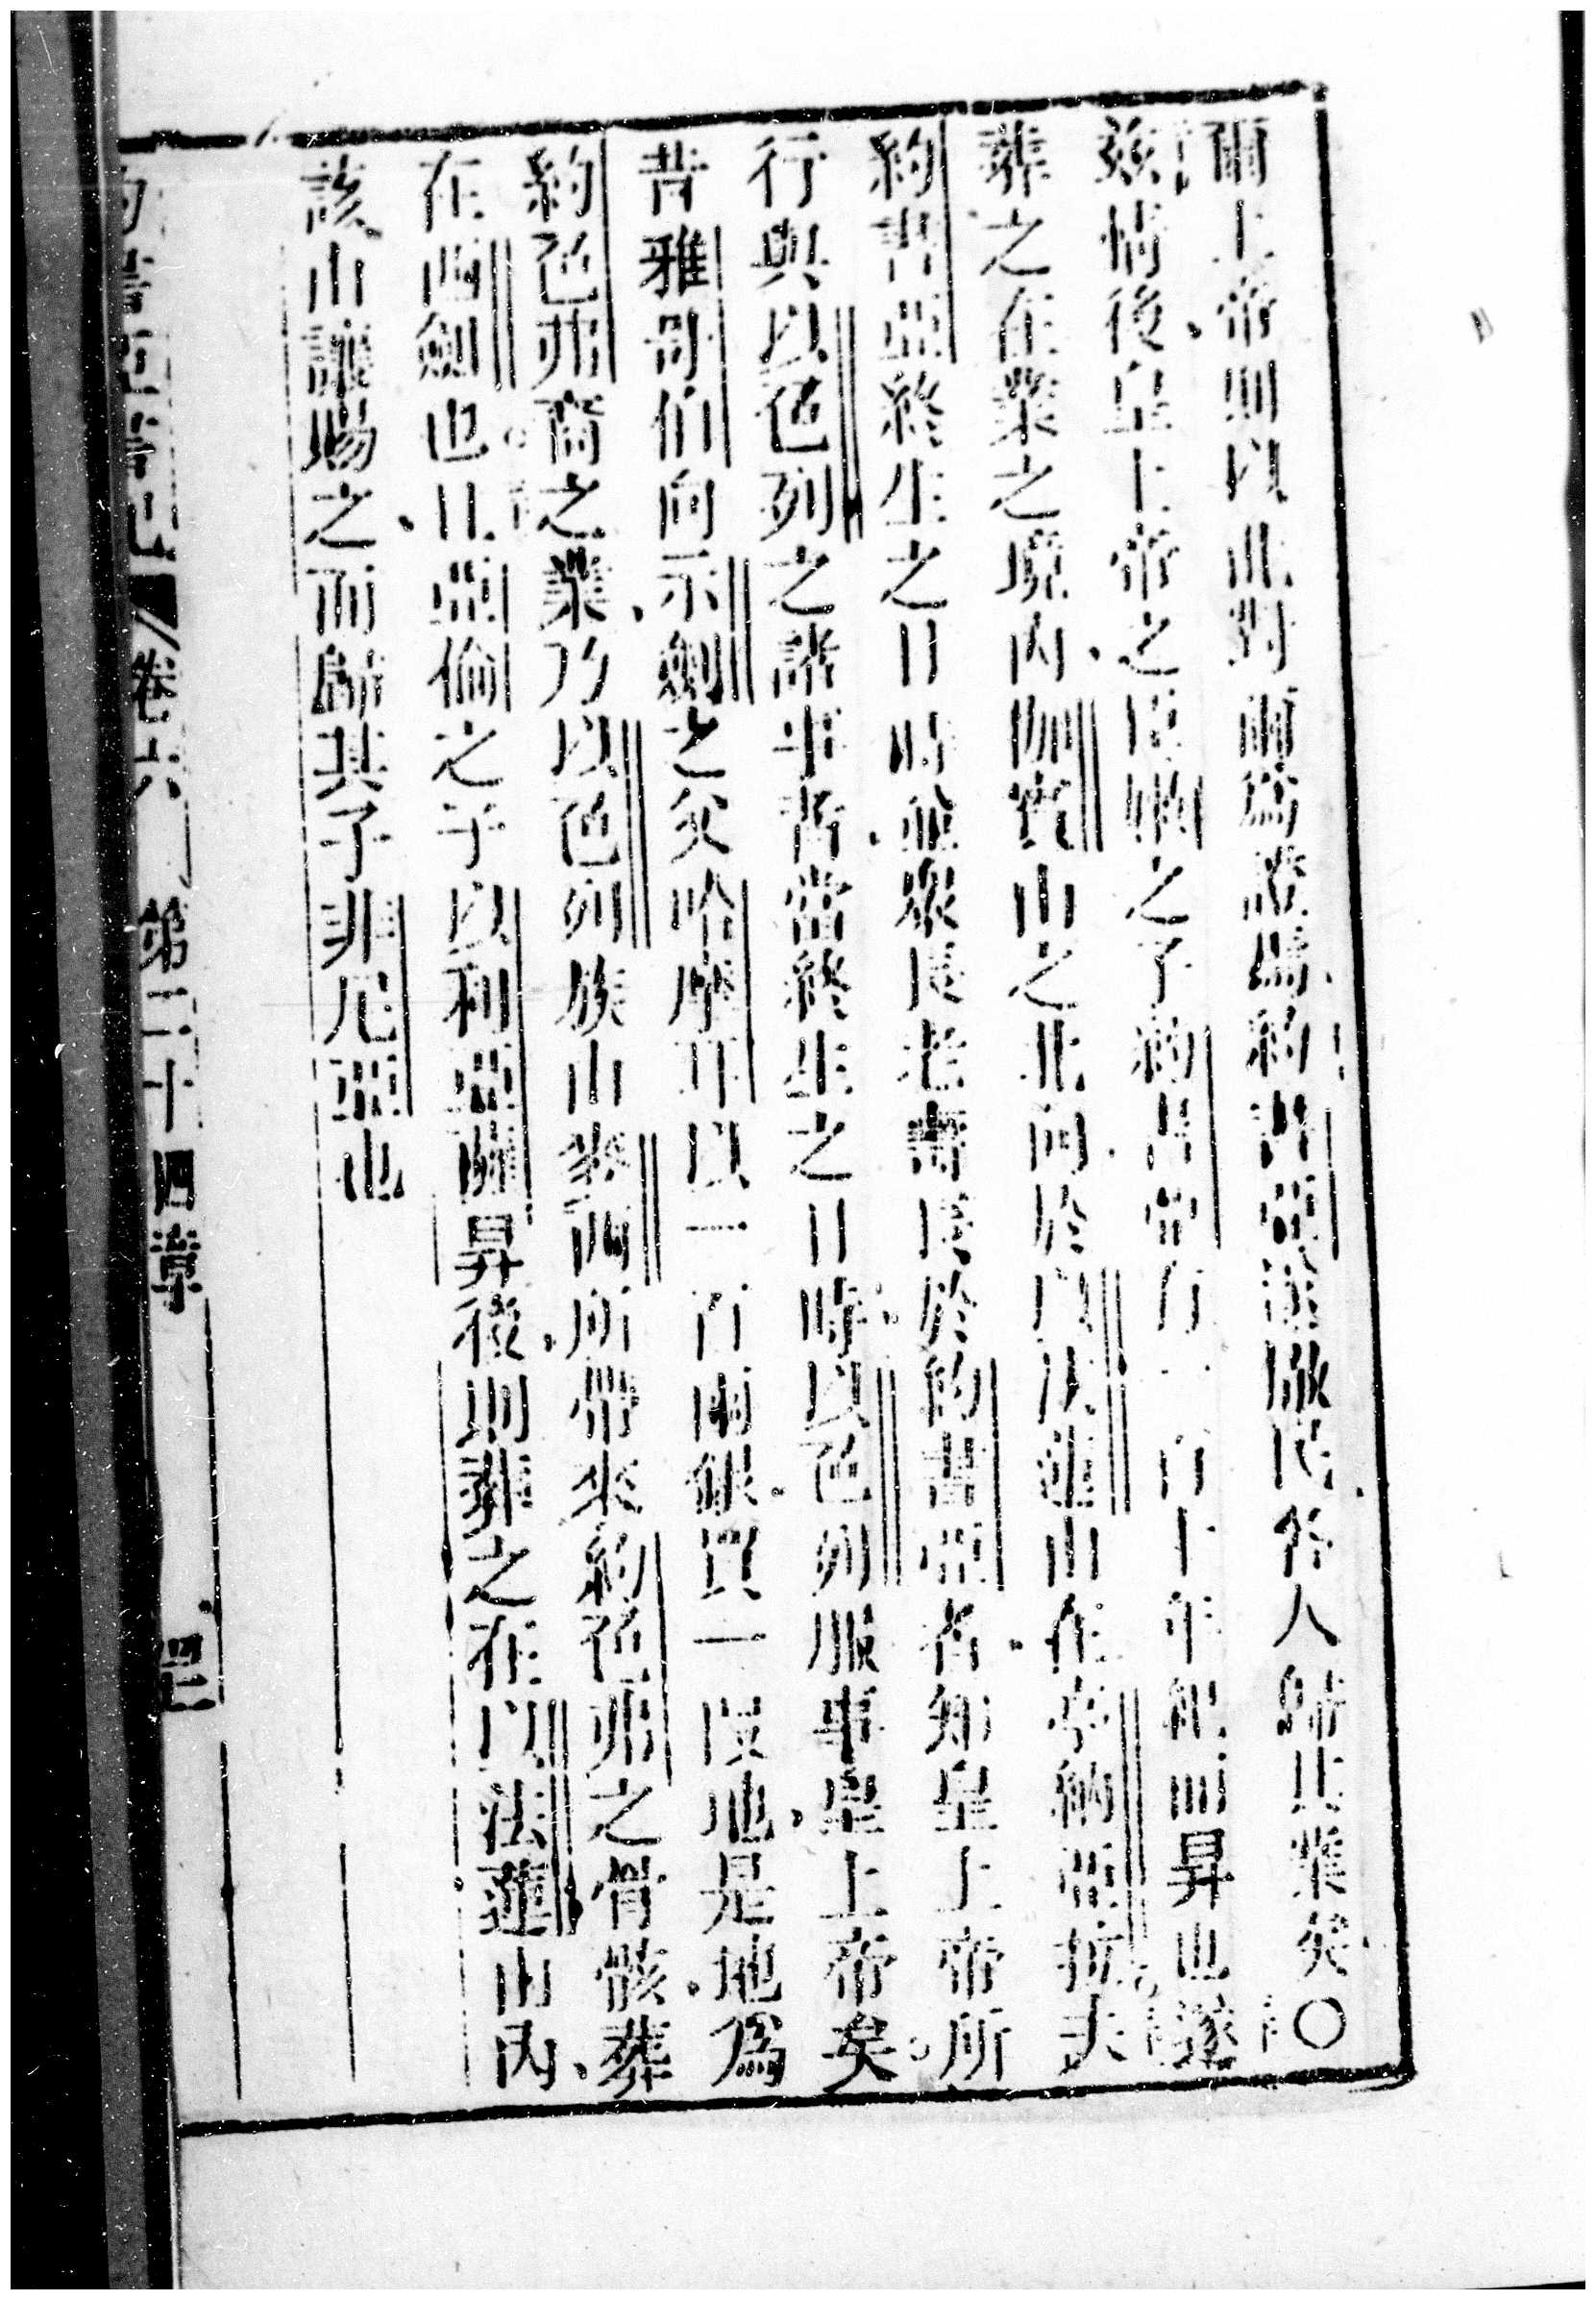 爾上帝則以此對爾爲證焉約書亞遂散民各人歸其業矣○
玆情後皇上帝之臣嫩之子約書亞有一百十年紀而昇也遂
葬之在業之境内以法蓮山之北向
約書亞終生之日時並衆長老壽長於約書亞者知皇上帝所
行與以色列之諸事者當終生之日時以色列服事皇上帝矣
昔雅哥伯向示劍之父哈摩耳以一百兩銀買一段地是地爲
約色弗裔之業乃以色列族由麥西所帶來約色弗之骨骸葬
在西劍也且亞倫之子以利亞撒昇後則葬之在以法蓮山内
該山讓賜之而歸其子非尼亞也
約書亞書記 卷六 第二十四章